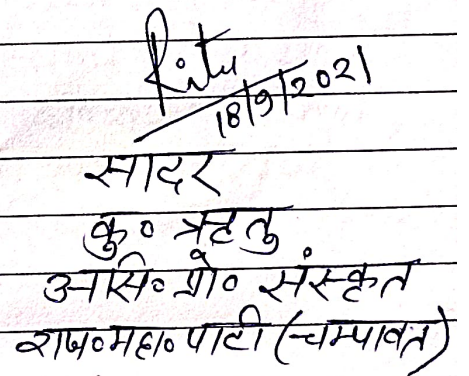 Ritu
18/9/2021
सादर
कु० ऋतु
असि० प्रो० संस्कृत
राज० महा० पाटी (चम्पावत)